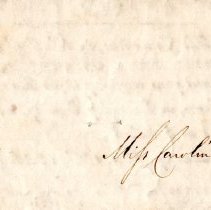 Miſs Carolin